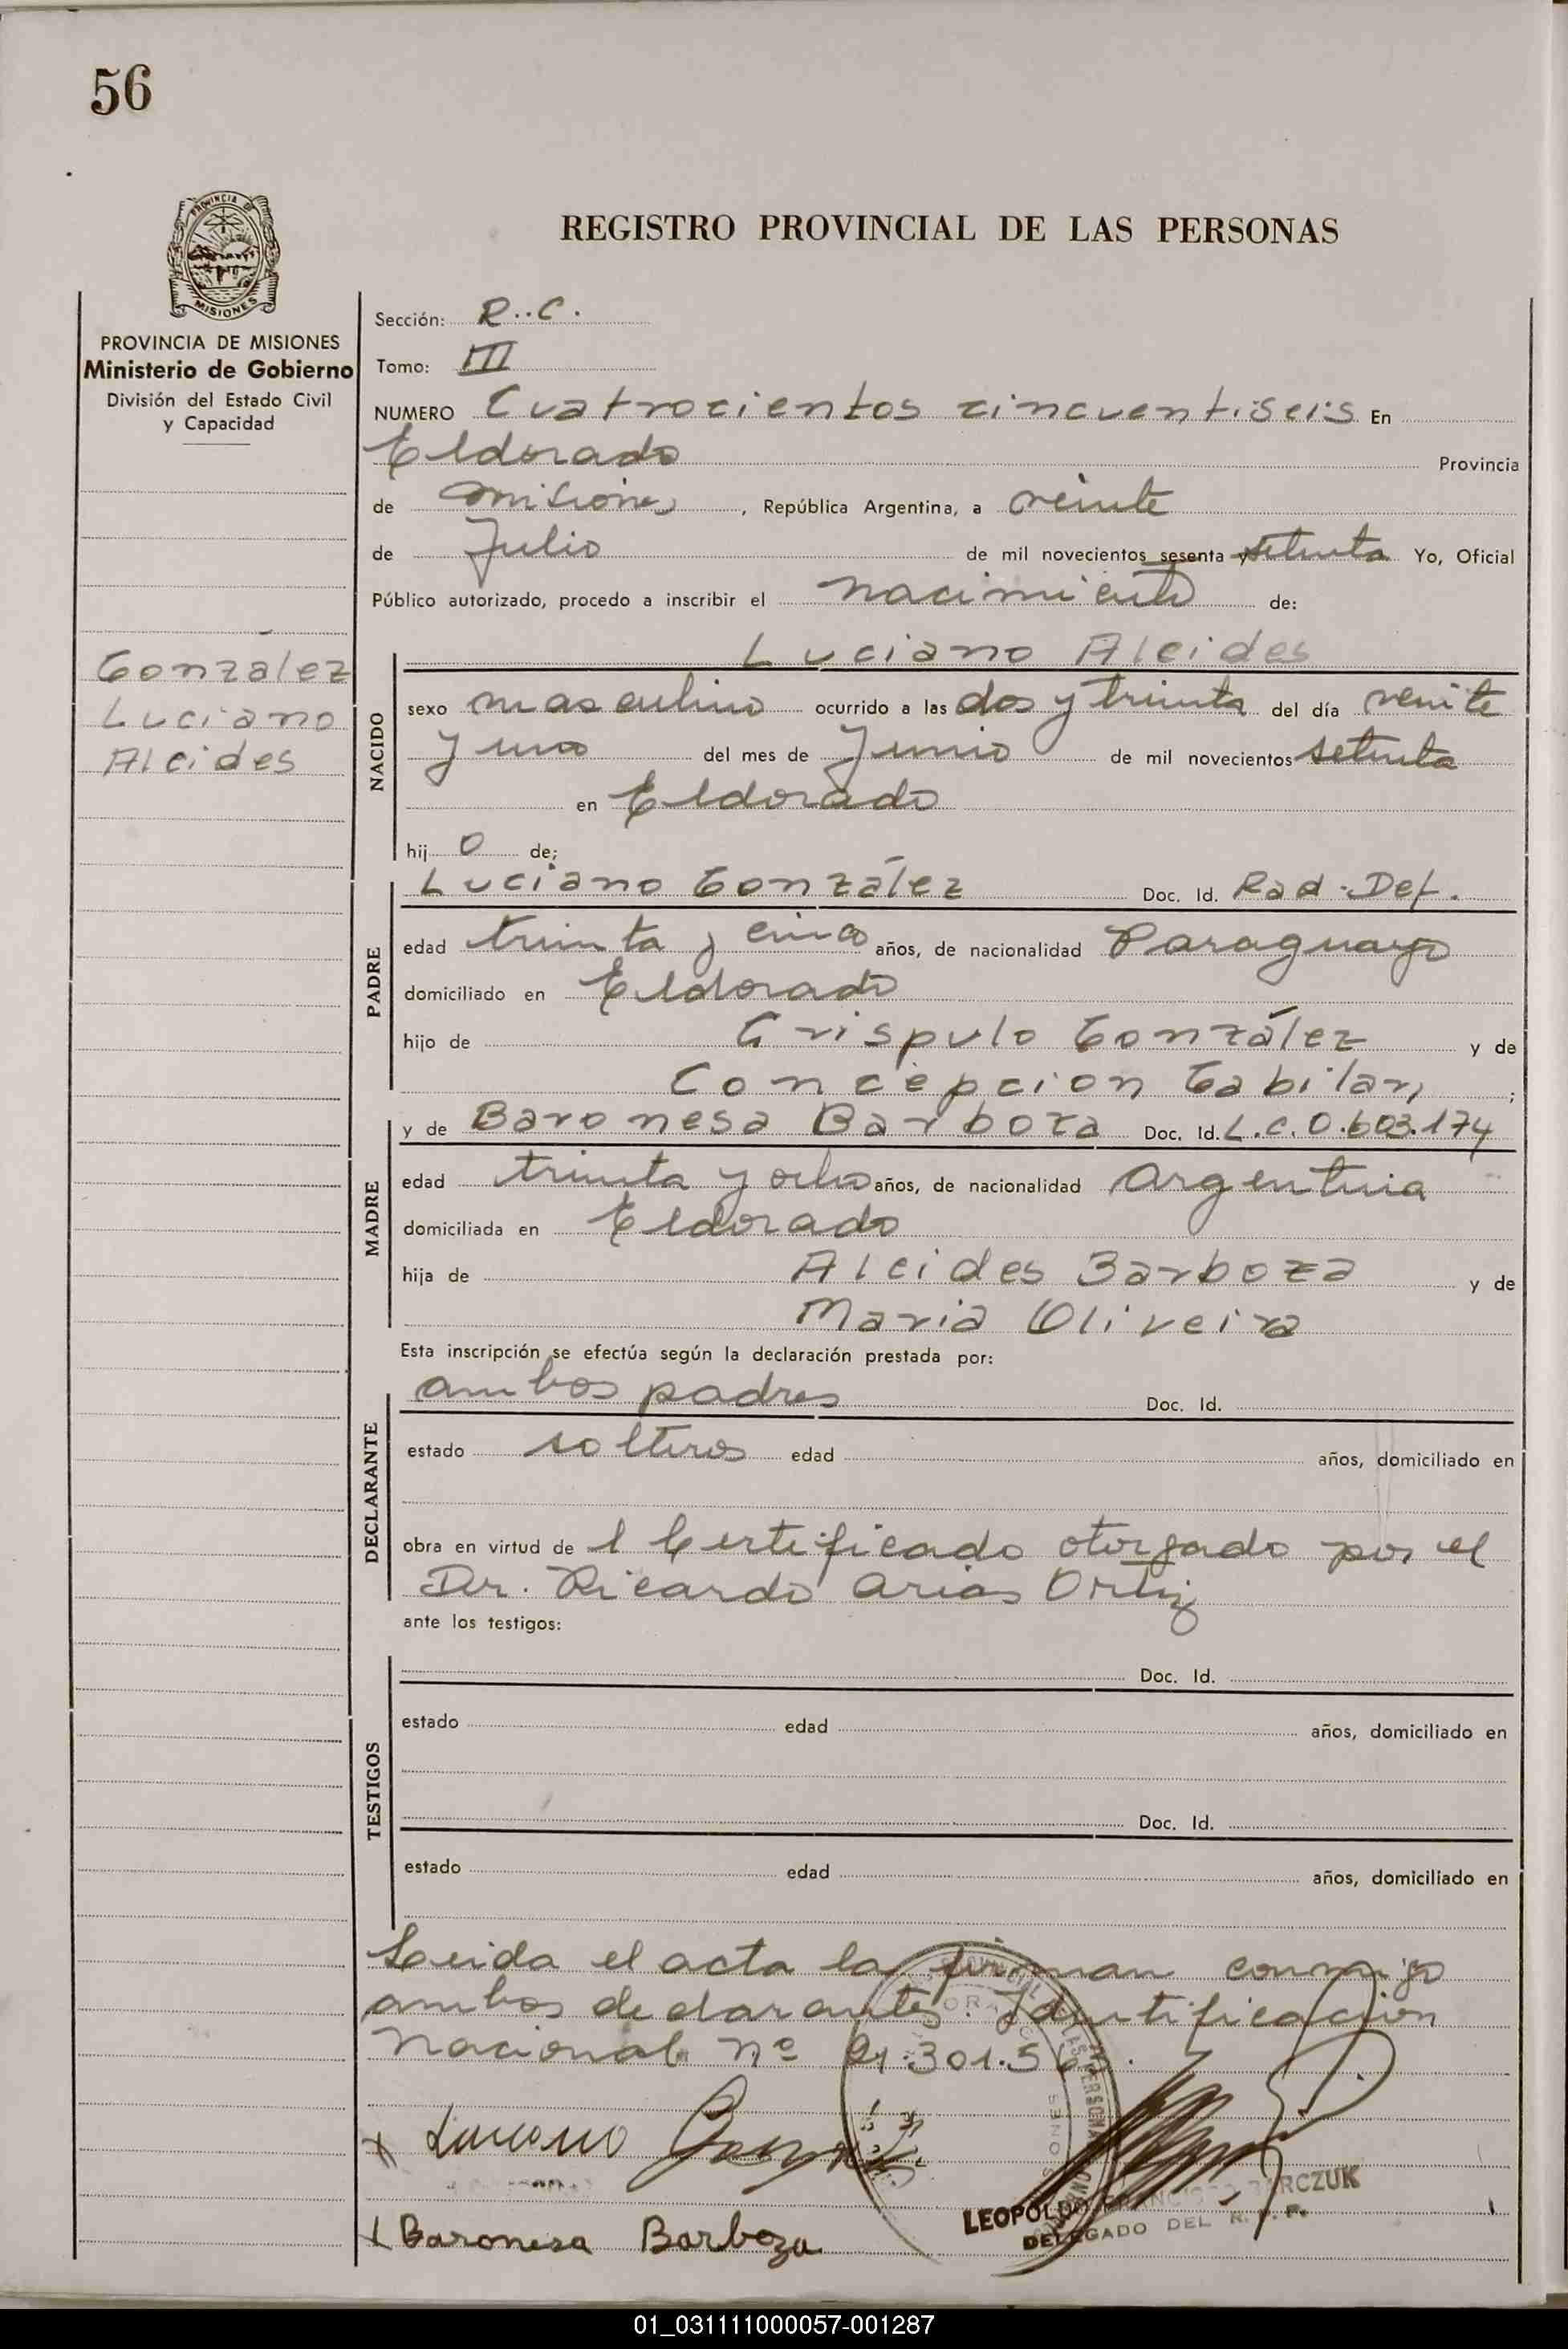 56
PROVINCIA DE
MISIONES
PROVINCIA DE MISIONES
Ministerio de Gobierno
División del Estado Civil
y Capacidad
Gonzalez
Luciano
Alcides
REGISTRO PROVINCIAL DE LAS PERSONAS
Sección: R..C.
Tomo: III
NUMERO Cuatrocientos cincuentiseis En
Eldorado Provincia
de Misiones, República Argentina, a veinte
de Julio de mil novecientos sesenta y setenta Yo, Oficial
Público autorizado, procedo a inscribir el nacimiento de:
Luciano Alcides
NACIDO
sexo masculino ocurrido a las dos y treinta del día veinte
y uno del mes de Junio de mil novecientos setenta
en Eldorado
hij o de;
Luciano González Doc. Id. Rad. Def.
PADRE
edad treinta y cinco años, de nacionalidad Paraguayo
domiciliado en Eldorado
hijo de Crispulo González y de
Concepcion Gabilan;
y de Baronesa Barboza Doc. Id. L.C.0.603.174
MADRE
edad treinta y ocho años, de nacionalidad Argentina
domiciliada en Eldorado
hija de Alcides Barboza y de
Maria Oliveira
Esta inscripción se efectúa según la declaración prestada por:
ambos padres Doc. Id.
DECLARANTE
estado solteros edad años, domiciliado en
obra en virtud de l Certificado otorgado por el
Dr. Ricardo Arias Ortiz
ante los testigos:
Doc. Id.
TESTIGOS
estado edad años, domiciliado en
Doc. Id.
estado edad años, domiciliado en
Leida el acta la firman conmigo
ambos declarantes. Identificacion
nacional nº 21.301.56
x Luciano Gonzalez
LEOPOLDO FRANCISCO BARCZUK
DELEGADO DEL R. P. P.
x Baronesa Barboza
01_031111000057-001287